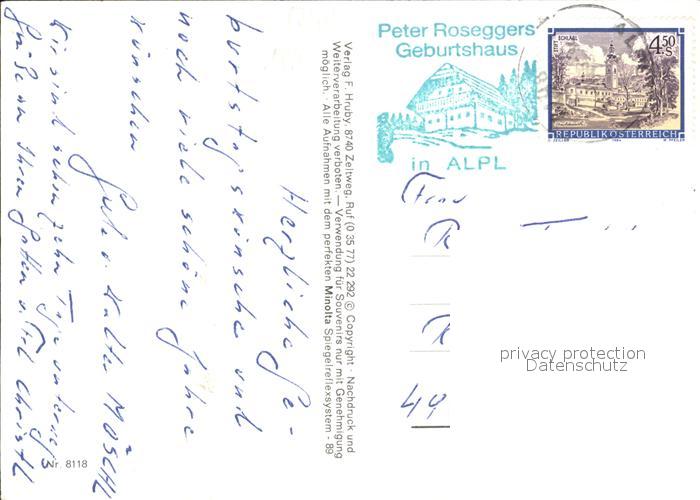 Herzliche Ge-
burtstagswünsche und
noch viele schöne Jahre
wünschen
Gute u. Walter MÖSCHL
Wir sind schon zehn Tage unterwegs
Grüße an Ihren Gatten u. Frl. Christl
Nr. 8118
Verlag F. Hruby, 8740 Zeltweg, Ruf (0 35 77) 22 292 © Copyright - Nachdruck und
Weiterverarbeitung verboten. — Verwendung für Souvenirs nur mit Genehmigung
möglich. Alle Aufnahmen mit dem perfekten Minolta Spiegelreflexsystem - 89
Peter Roseggers
Geburtshaus
in ALPL
STIFT SCHLÄGL
4.50
S
REPUBLIK ÖSTERREICH
Frau
R
R
49
privacy protection
Datenschutz